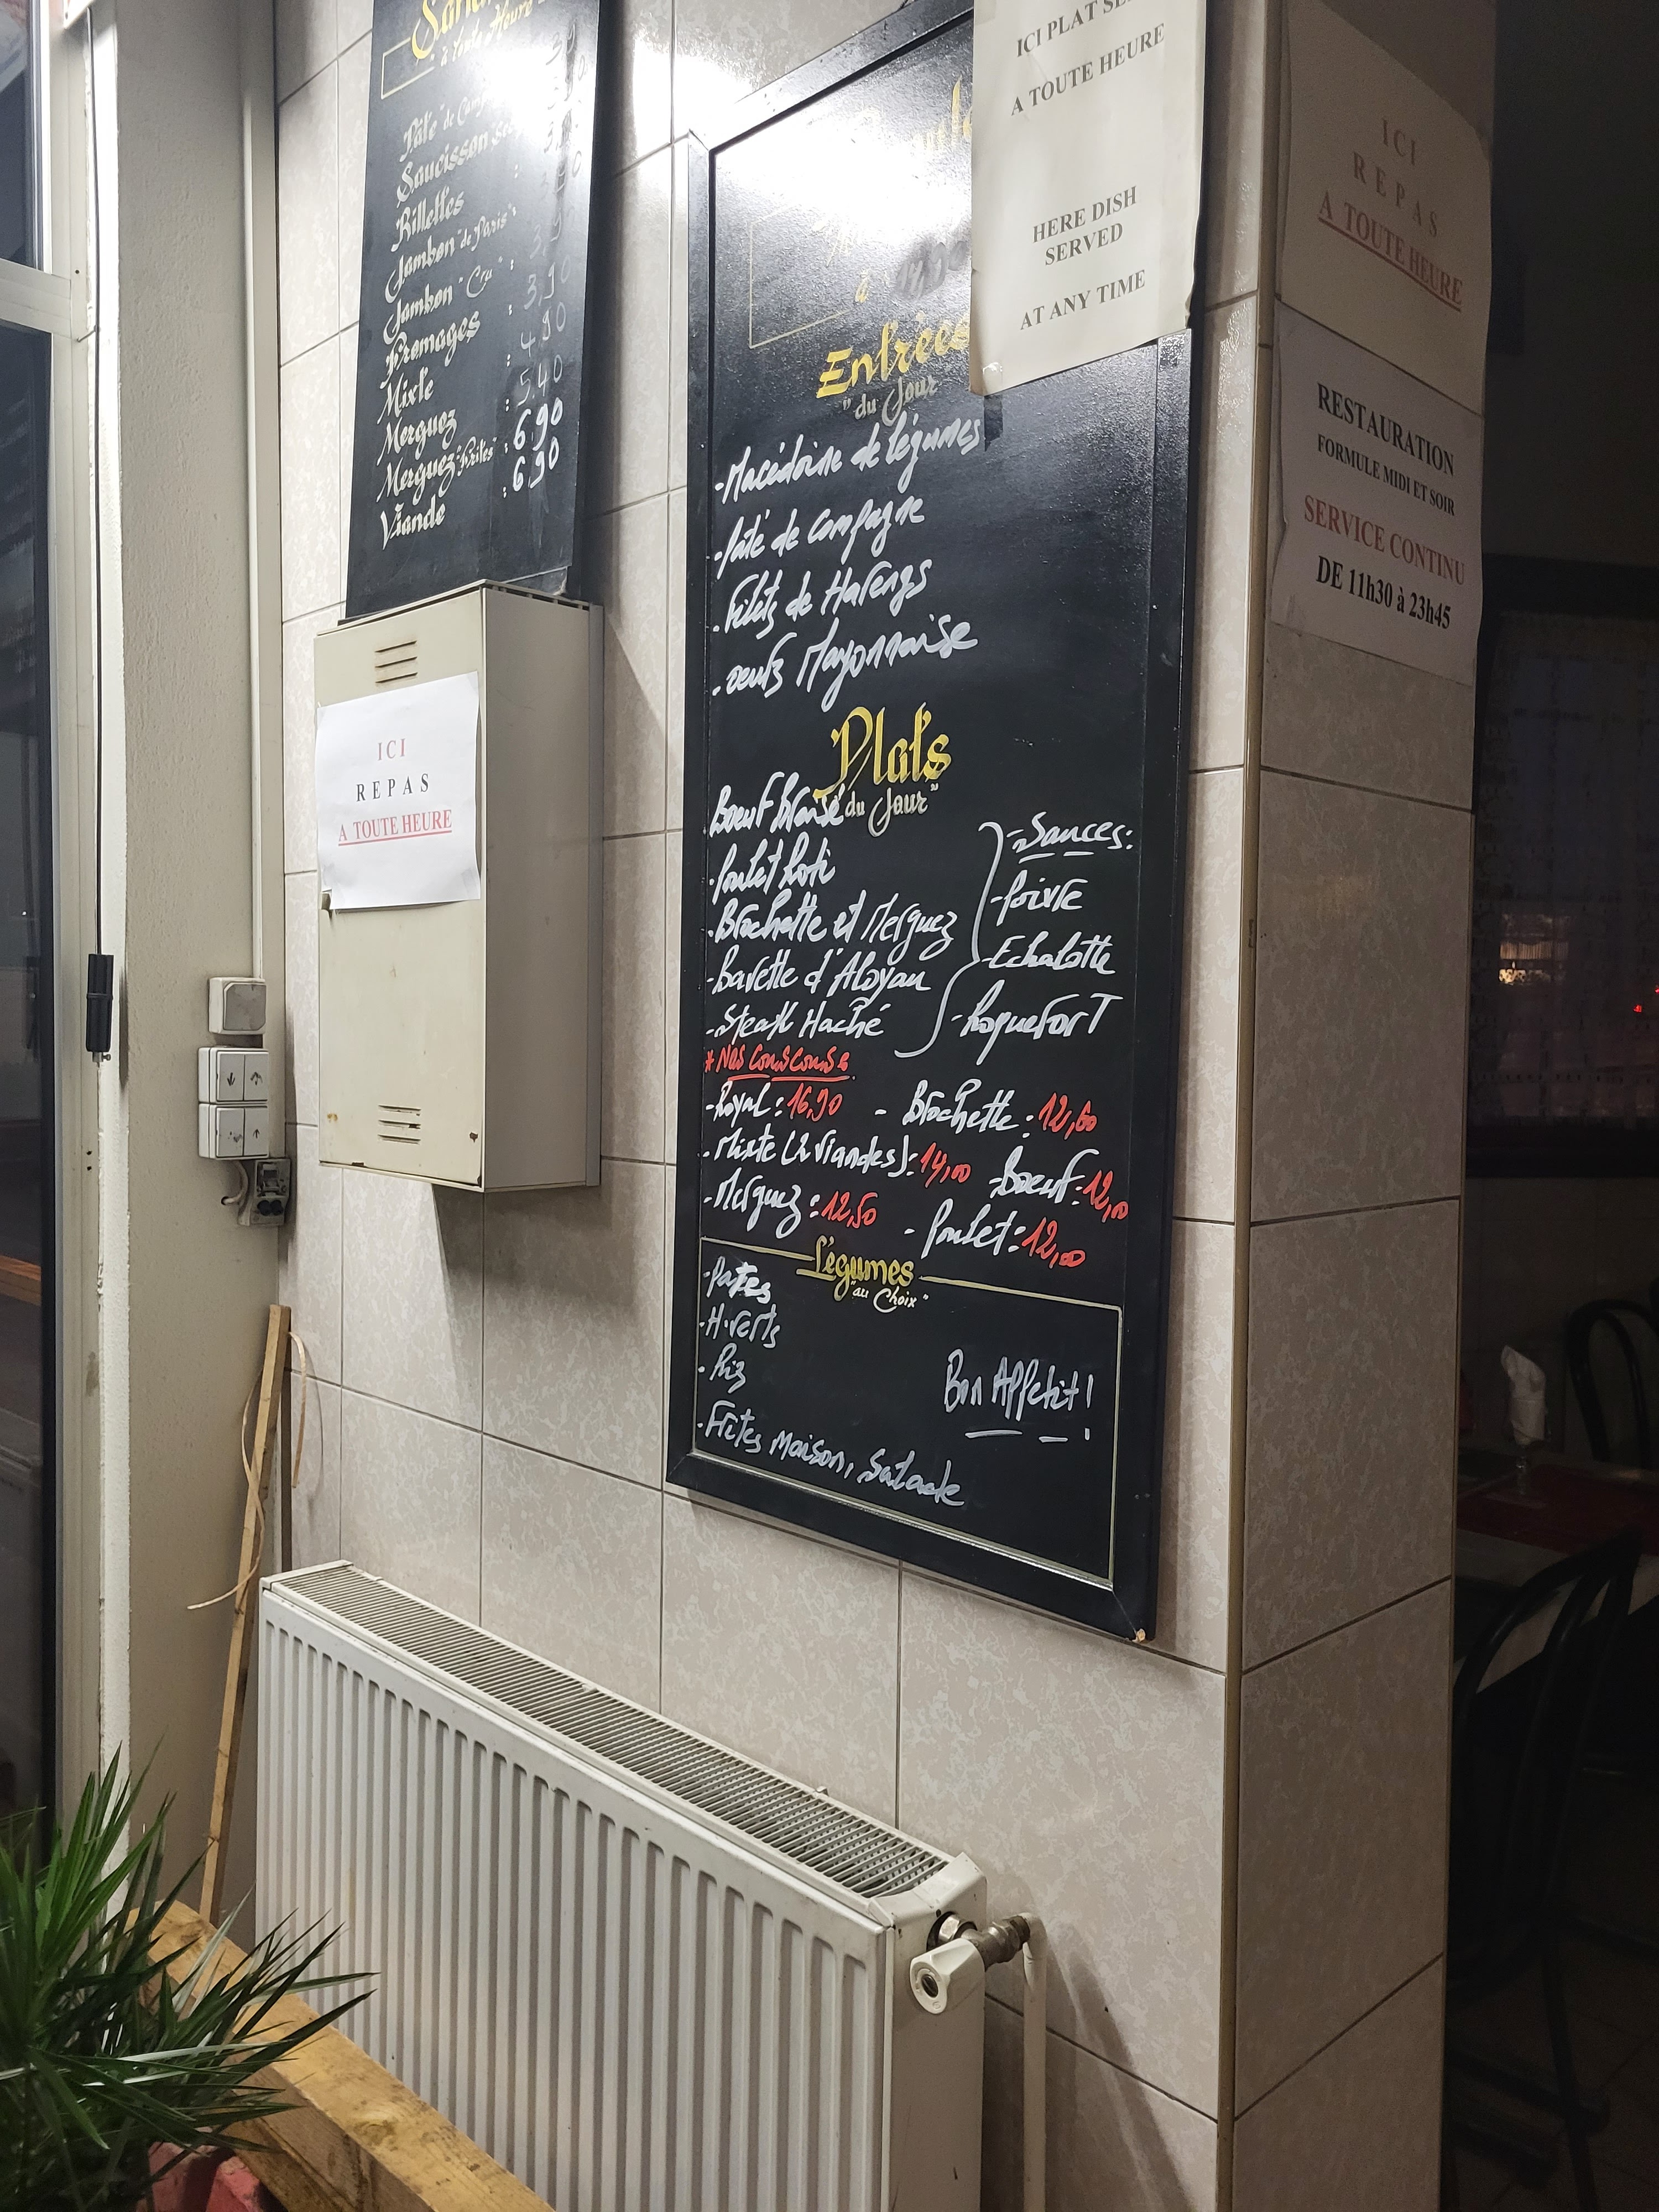 à toute Heure
Pâté "de Camp
Saucisson sec
Rillettes
Jambon "de Paris" :
Jambon "Cru" : 3,90
Fromages : 3,90
Mixte : 4,90
Merguez : 5,40
Merguez "Frites" : 6,90
Viande : 6,90
ICI
REPAS
A TOUTE HEURE
à
Entrées
"du Jour
-Macédoine de légumes
-Pâté de compagne
-Filets de Harengs
-oeufs Mayonnaise
Plats
"du Jour"
Boeuf braisé
-Poulet Roti
-Brochette et Merguez
-Bavette d'Aloyau
-Steak Haché
-Sauces:
-Poivre
-Echalotte
-Roquefort
* Nos Couscouss
-Royal : 16,90 - Brochette : 12,60
-Mixte (2 viandes) : 14,00 -Boeuf : 12,00
-Merguez : 12,50 - Poulet : 12,00
Légumes
"au Choix"
-Pates
-H.verts
-Riz
-Frites Maison, Salade
Bon Appetit!
ICI PLAT
A TOUTE HEURE
HERE DISH
SERVED
AT ANY TIME
ICI
REPAS
A TOUTE HEURE
RESTAURATION
FORMULE MIDI ET SOIR
SERVICE CONTINU
DE 11h30 à 23h45